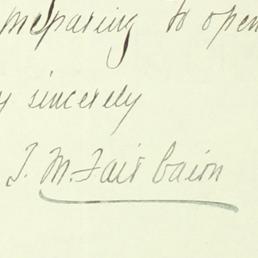 preparing to open
y sincerely
J. M. Fairbairn